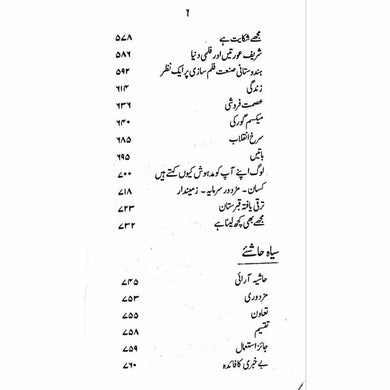 ۲
مجھے شکایت ہے ۵۷۸
شریف عورتیں اور فلمی دنیا ۵۸۶
ہندوستانی صنعت فلم سازی پر ایک نظر ۵۹۲
زندگی ۶۱۴
عصمت فروشی ۶۳۶
میکسم گورکی ۶۴۰
سرخ انقلاب ۶۸۵
باتیں ۶۹۵
لوگ اپنے آپ کو مدہوش کیوں کہتے ہیں ۷۰۰
کسان - مزدور سرمایہ - زمیندار ۷۱۸
ترقی یافتہ قبرستان ۷۲۳
مجھے بھی کچھ لینا ہے ۷۳۲
سیاہ حاشئے
حاشیہ آرائی ۷۴۵
مزدوری ۷۵۳
تعاون ۷۵۵
تقسیم ۷۵۸
جائز استعمال ۷۵۹
بے خبری کا فائدہ ۷۶۰